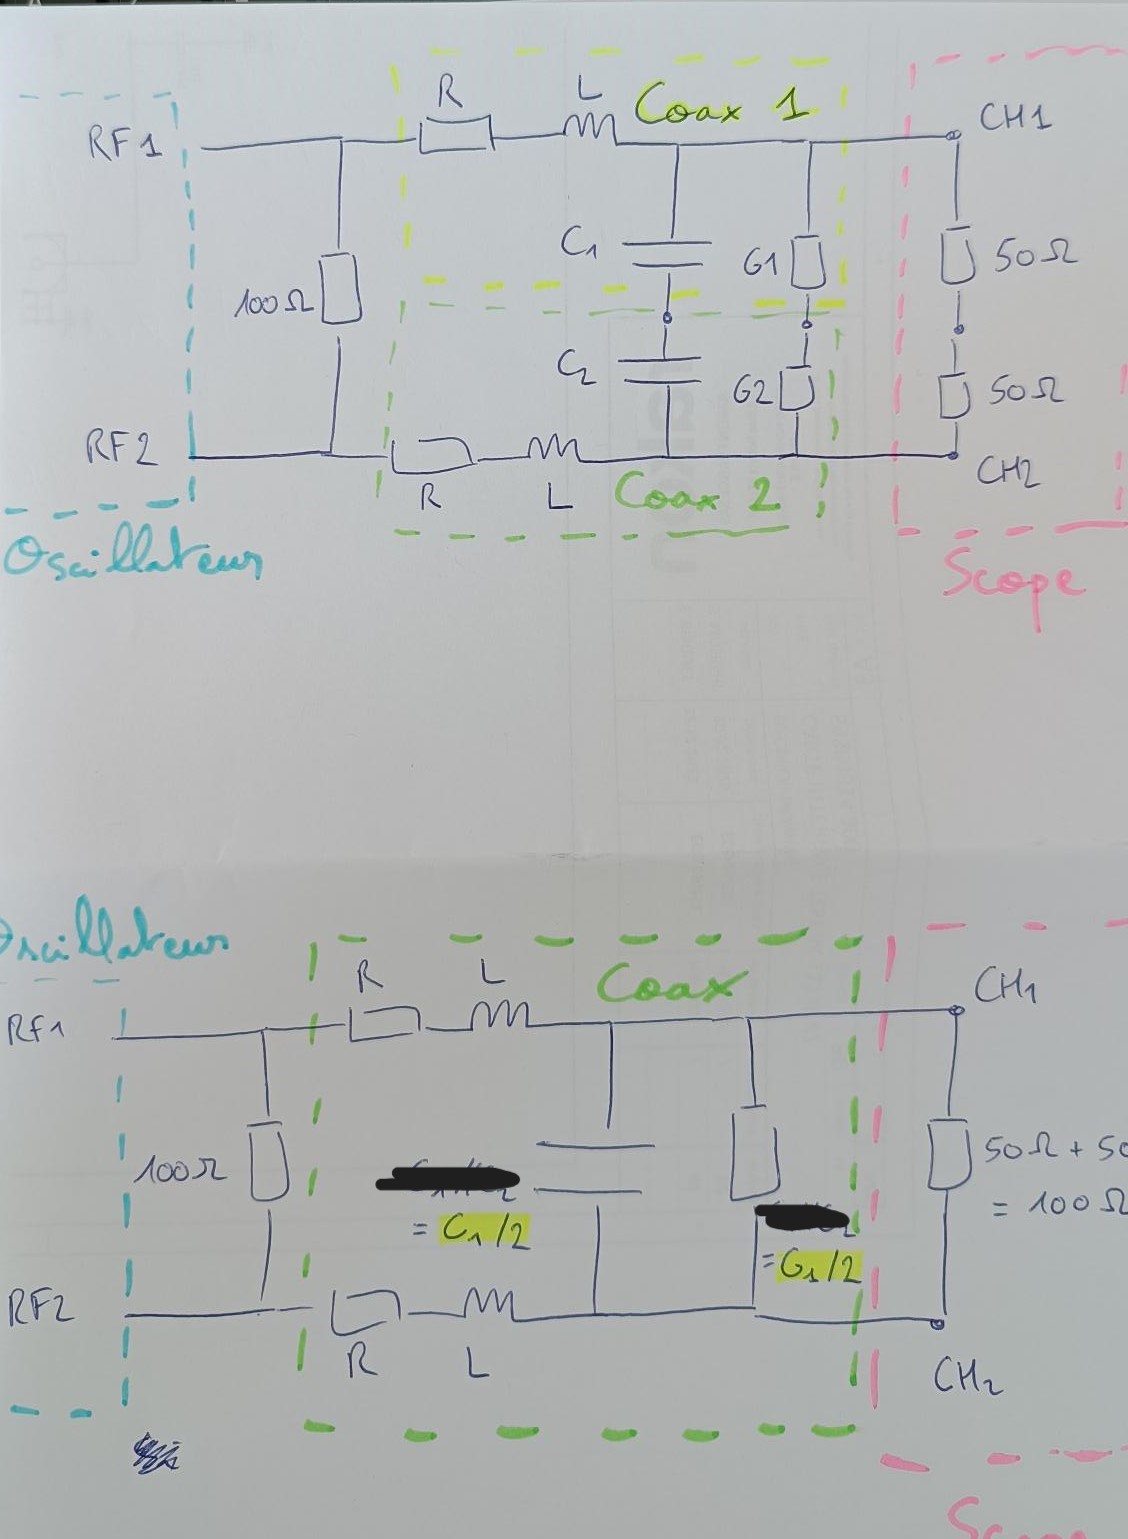 R L Coax 1
RF1
CH1
C1 G1 50Ω
100Ω
C2 G2 50Ω
RF2
R L Coax 2
CH2
Oscillateur
Scope
Oscillateur
R L Coax
CH1
RF1
100Ω
50Ω + 50
= 100Ω
= C1/2
= G1/2
RF2
R L
CH2